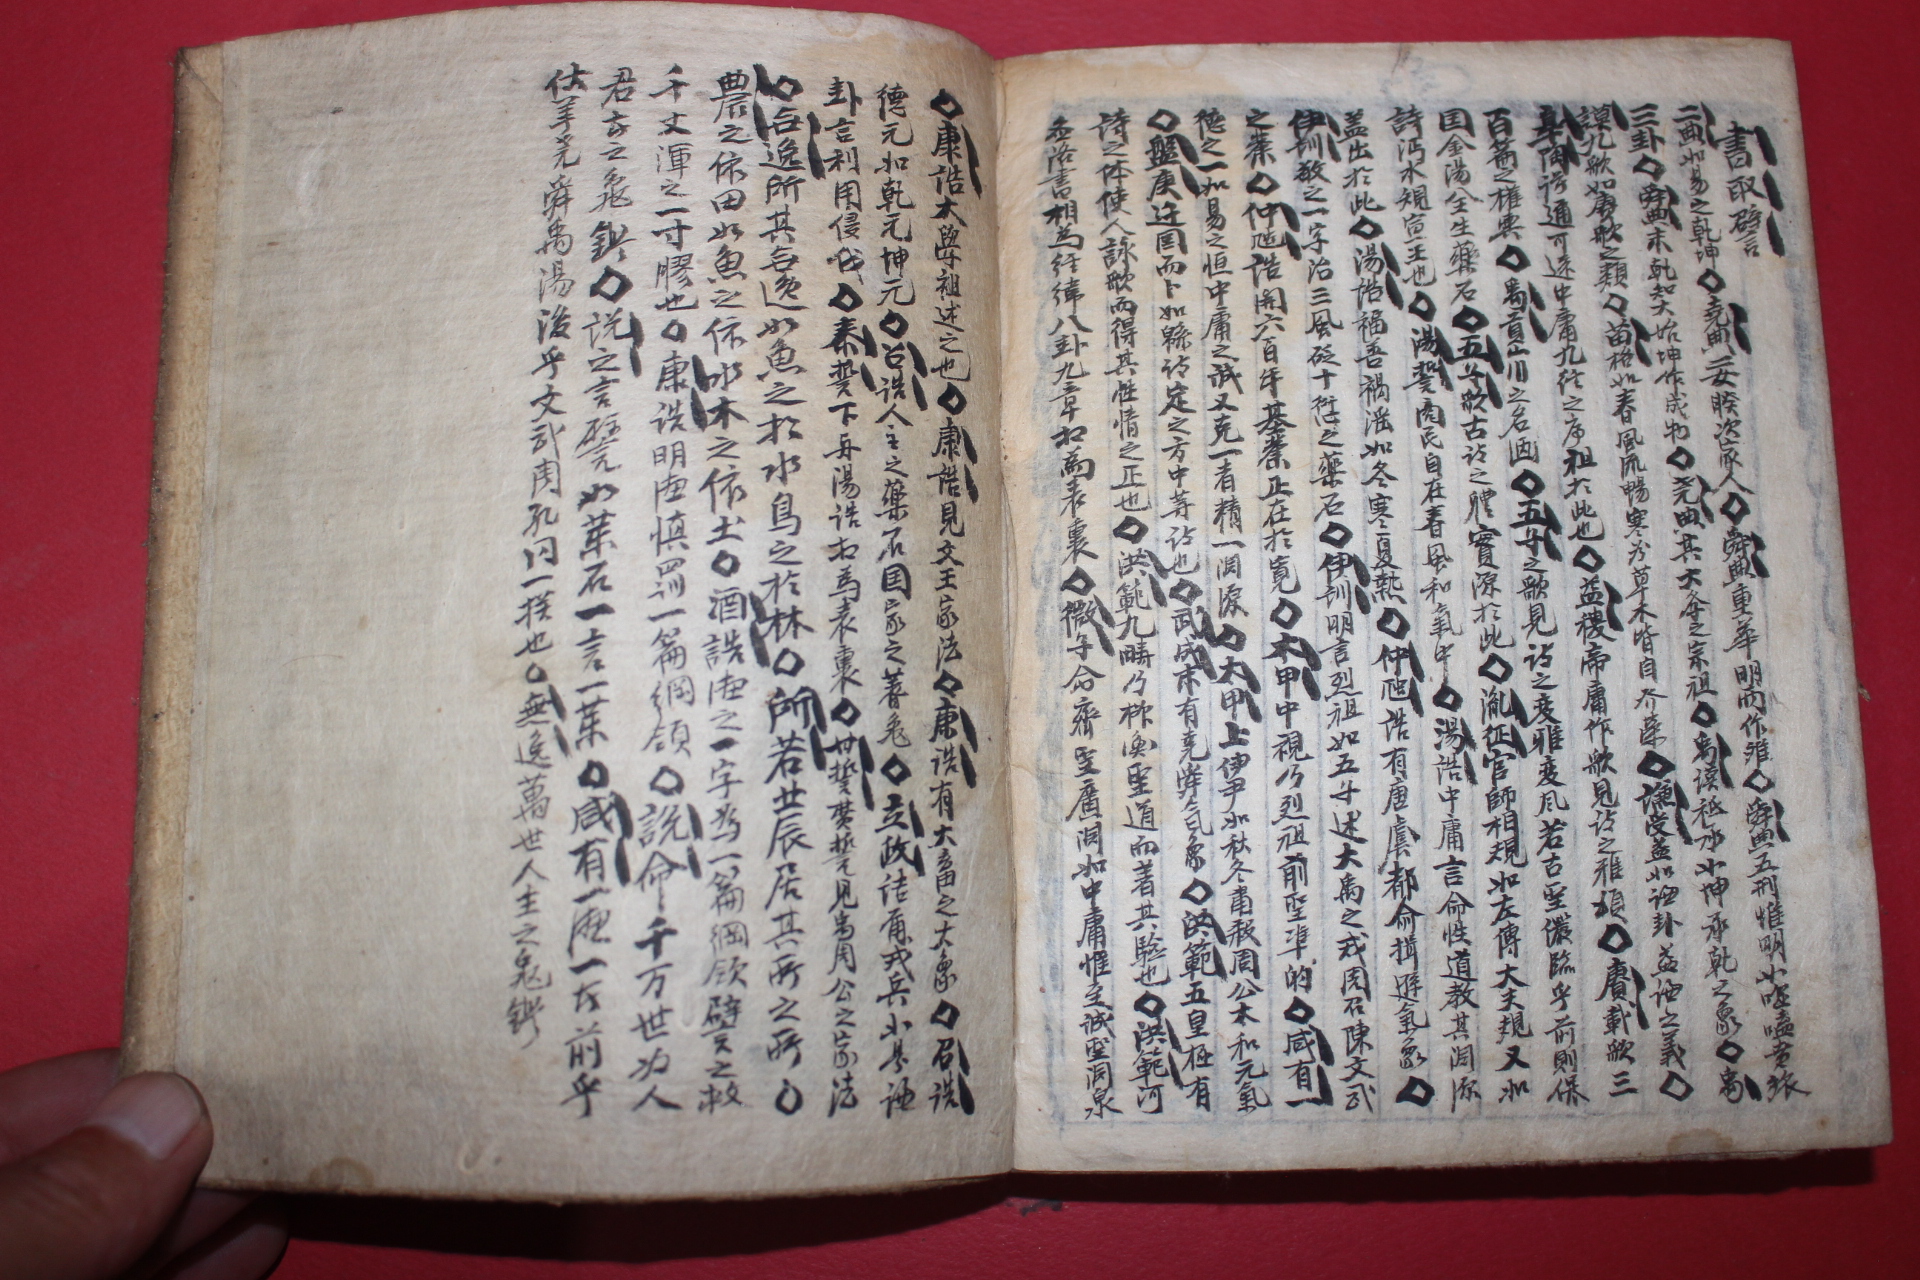 書取譬言
二典如易之乾坤◇堯典二女睽次家人◇舜典重華明两作離◇舜典五刑惟明如噬嗑賁
三卦◇舜典末乾知大始坤作成物◇堯典其大學之宗祖◇禹謨祗承如坤承乾之象◇禹
謨九歌如賡歌之類◇苗格如春風流暢寒谷草木皆自發榮◇謙受益如謙卦益謙之義◇
皋陶謨通可述中庸九經之序祖於此也◇益稷帝庸作歌見詩之雅頌◇賡載歌三
百篇之權輿◇禹貢山川之名画◇五子之歌見詩之變雅變風若古聖儼臨乎前則保
国金湯全生藥石◇五子歌古詩之體實源於此◇胤征官師相規如左傳大夫規又如
詩沔水規宣王也◇湯誓商民自在春風和氣中◇湯誥中庸言命性道教其淵源
盖出於此◇湯誥福善禍淫如冬寒夏熱◇仲虺誥有唐虞都兪揖遜氣象◇
伊訓敬之一字治三風砭十愆之藥石◇伊訓明言烈祖如五子述大禹之戒周召陳文武
之業◇仲虺誥開六百年基業正在於寛◇太甲中視乃烈祖前聖準的◇咸有一
德之一如易之恒中庸之誠又克一者精一淵源◇太甲上伊尹如秋冬肅殺周公太和元氣
◇盤庚迁国而卜如緜詩定之方中等詩也◇武成末有堯舜氣象◇洪範五皇極有
詩之体使人詠歌而得其性情之正也◇洪範九疇乃称箕聖道而著其驗也◇洪範河
圖洛書相為經緯八卦九章相為表裏◇微子命齊聖廣淵如中庸惟至誠聖淵泉
◇康誥大學祖述之也◇康誥見文王家法◇康誥有大畜之大象◇召誥
德元如乾元坤元◇召誥人主之藥石国家之蓍龜◇立政詰爾戎兵如是謙
卦言利用侵伐◇秦誓下与湯誥相為表裏◇費誓誓見禹周公之家法
◇無逸所其無逸如魚之於水鳥之於林◇所若北辰居其所之所◇
農之依田如魚之依水木之依土◇酒誥德之一字為一篇綱領譬言之救
千丈渾之一寸膠也◇康誥明德慎罰一篇綱領◇說命千万世为人
君者之龜鑑◇說之言譬言如藥石一言一藥◇咸有一德一在前乎
伏羲堯舜禹湯後乎文武周孔同一揆也◇無逸萬世人主之龜鑑